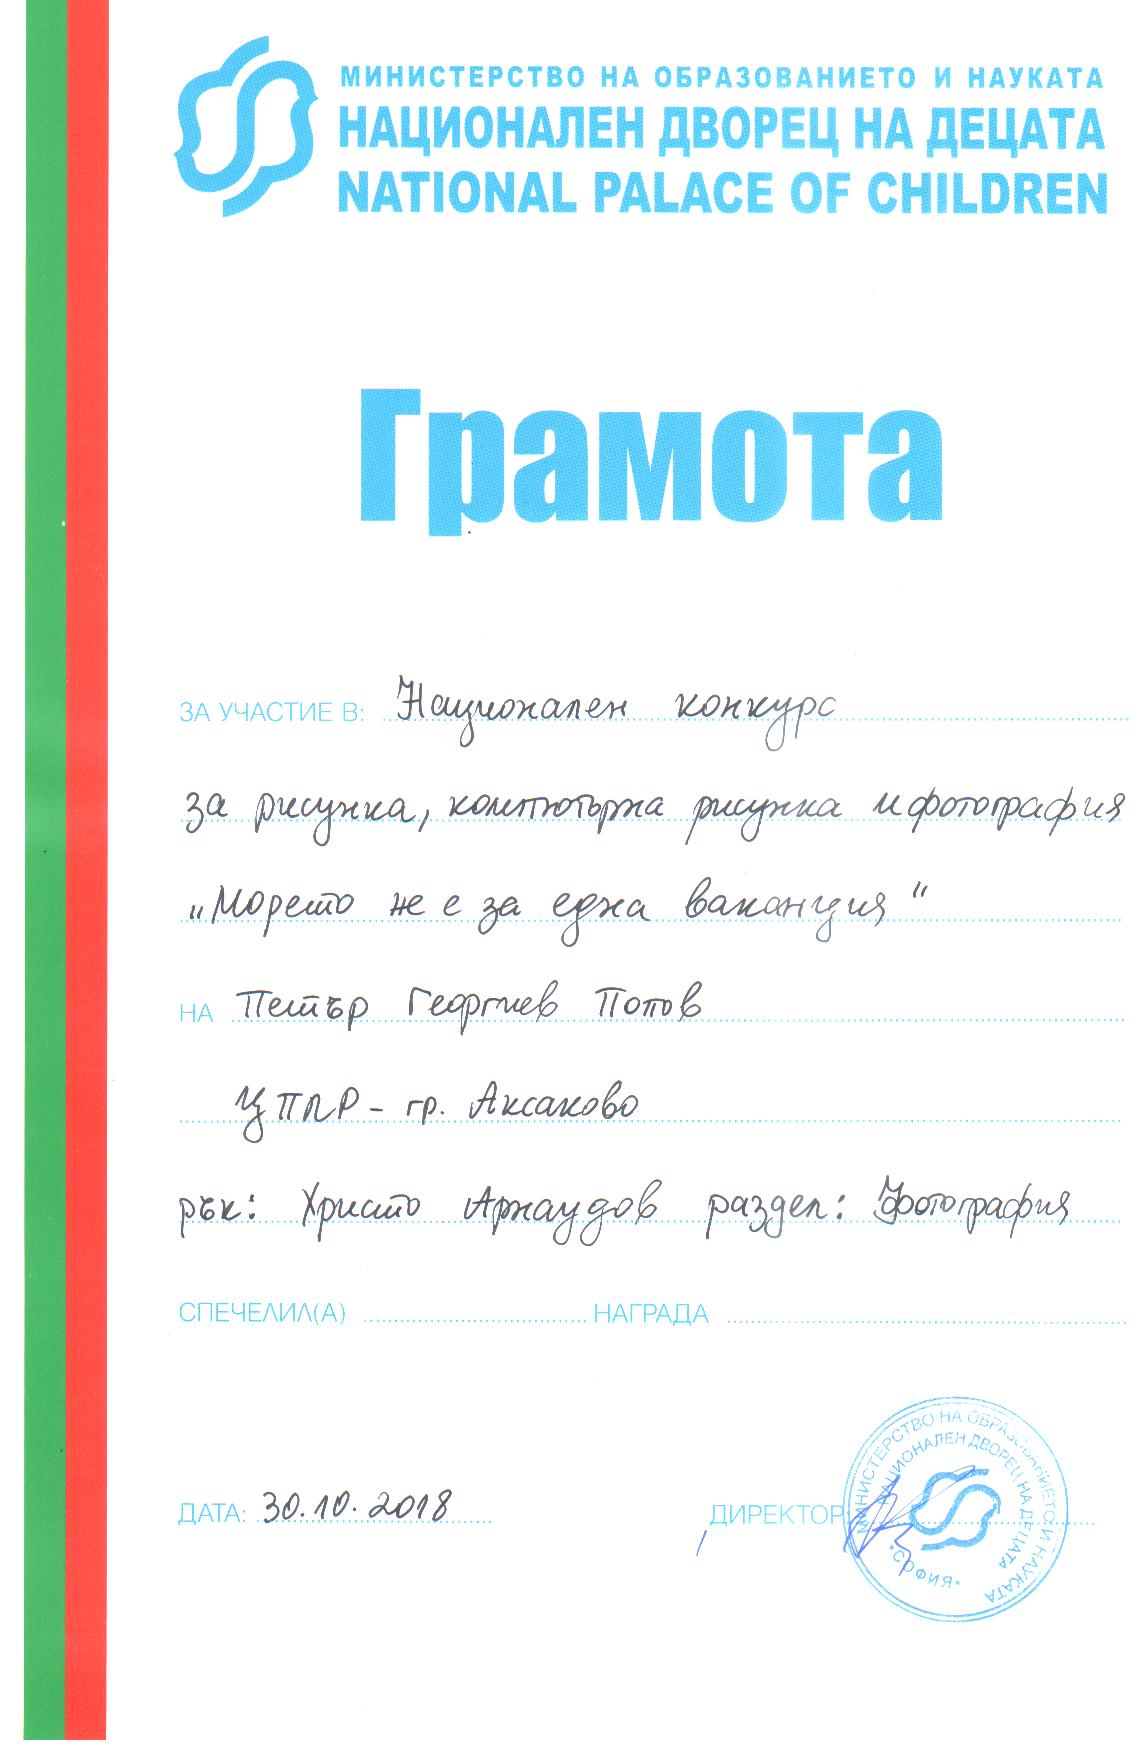 МИНИСТЕРСТВО НА ОБРАЗОВАНИЕТО И НАУКАТА
НАЦИОНАЛЕН ДВОРЕЦ НА ДЕЦАТА
NATIONAL PALACE OF CHILDREN
Грамота
ЗА УЧАСТИЕ В: Национален конкурс
за рисунка, компютърна рисунка и фотография
„Морето не е за една ваканция“
НА Петър Георгиев Попов
ЦПЛР - гр. Аксаково
рък: Христо Арнаудов раздел: Фотография
СПЕЧЕЛИЛ(А) НАГРАДА
ДАТА: 30.10.2018 ДИРЕКТОР:
МИНИСТЕРСТВО НА ОБРАЗОВАНИЕТО И НАУКАТА
НАЦИОНАЛЕН ДВОРЕЦ НА ДЕЦАТА
•СОФИЯ•